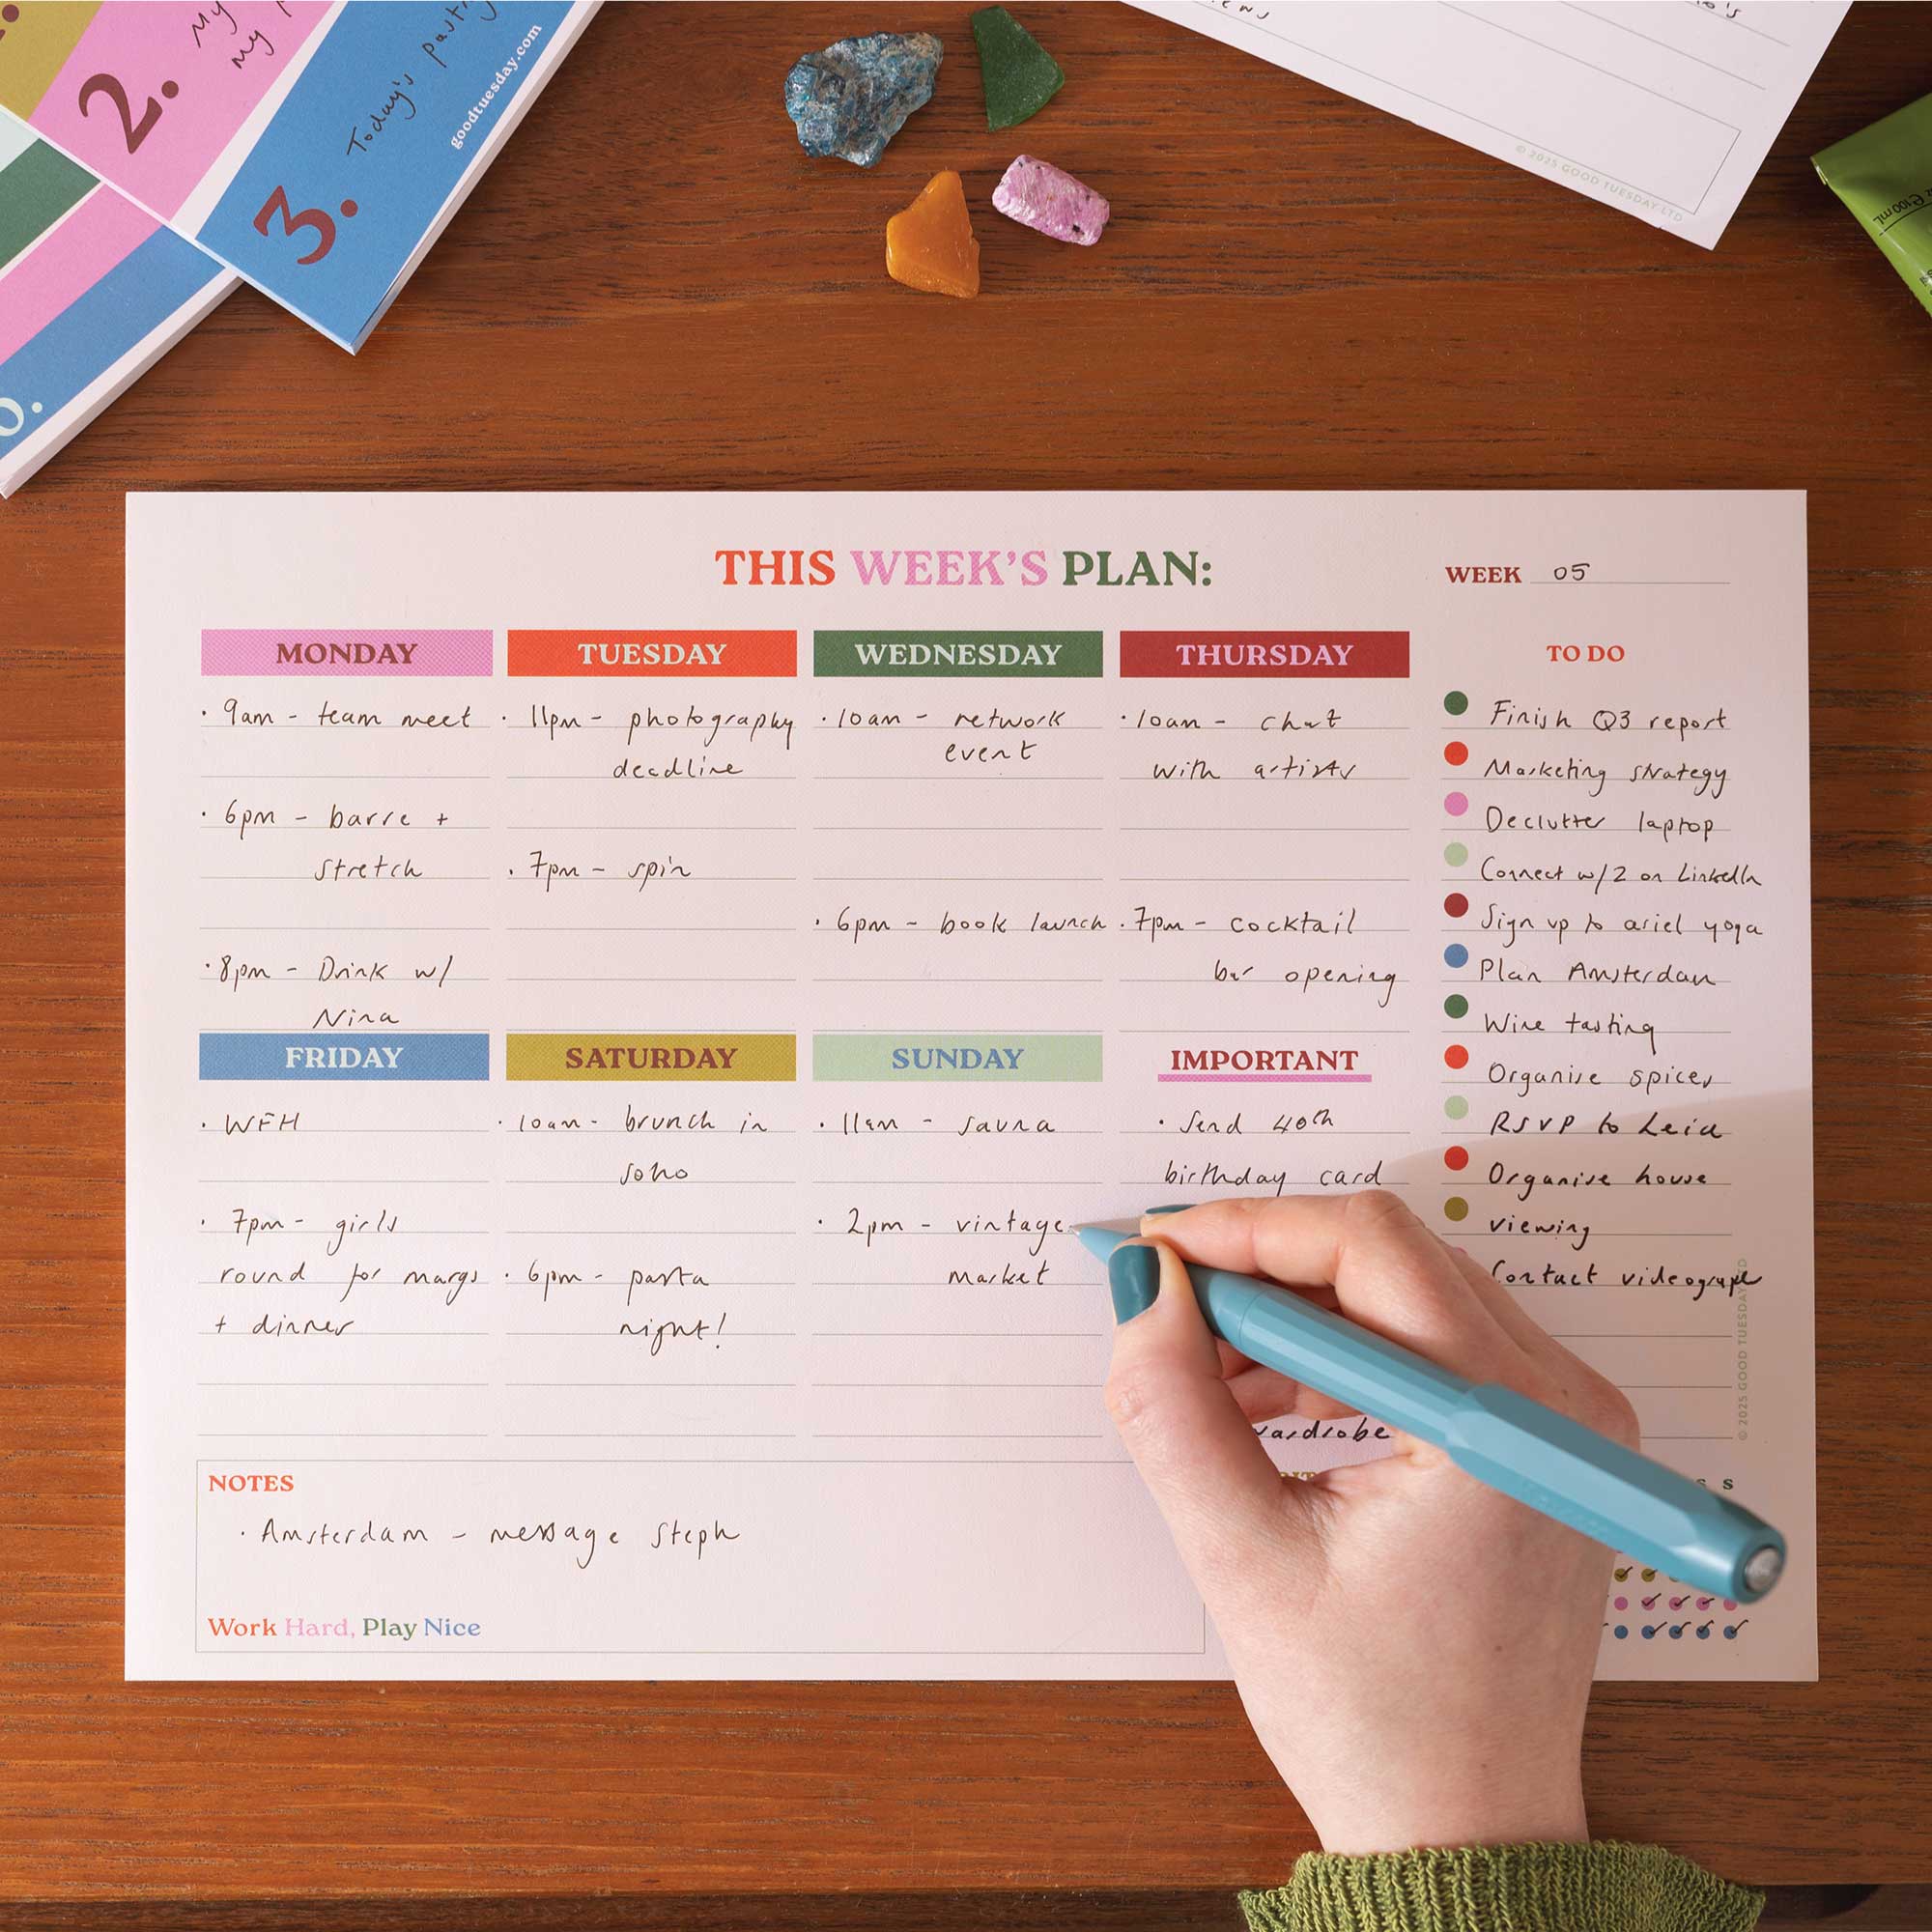 2.
My
my
3.
Today's
goodtuesday.com
© 2025 GOOD TUESDAY LTD
100mL
THIS WEEK'S PLAN:
WEEK 05
MONDAY
· 9am - team meet
· 6pm - barre +
stretch
· 8pm - Drink w/
Nina
TUESDAY
· 11pm - photography
deadline
· 7pm - spin
WEDNESDAY
· 10am - network
event
· 6pm - book launch
THURSDAY
· 10am - chat
with artists
· 7pm - cocktail
bar opening
FRIDAY
· WFH
· 7pm - girls
round for margs
+ dinner
SATURDAY
· 10am - brunch in
soho
· 6pm - pasta
night!
SUNDAY
· 11am - sauna
· 2pm - vintage
market
IMPORTANT
· Send 40th
birthday card
wardrobe
TO DO
Finish Q3 report
Marketing strategy
Declutter laptop
Connect w/2 on LinkedIn
Sign up to ariel yoga
Plan Amsterdam
Wine tasting
Organise spices
RSVP to Leia
Organise house
viewing
Contact videogrape
© 2025 GOOD TUESDAY LTD
S S
NOTES
· Amsterdam - message Steph
Work Hard, Play Nice